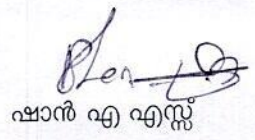 ഷാൻ എ എസ്സ്